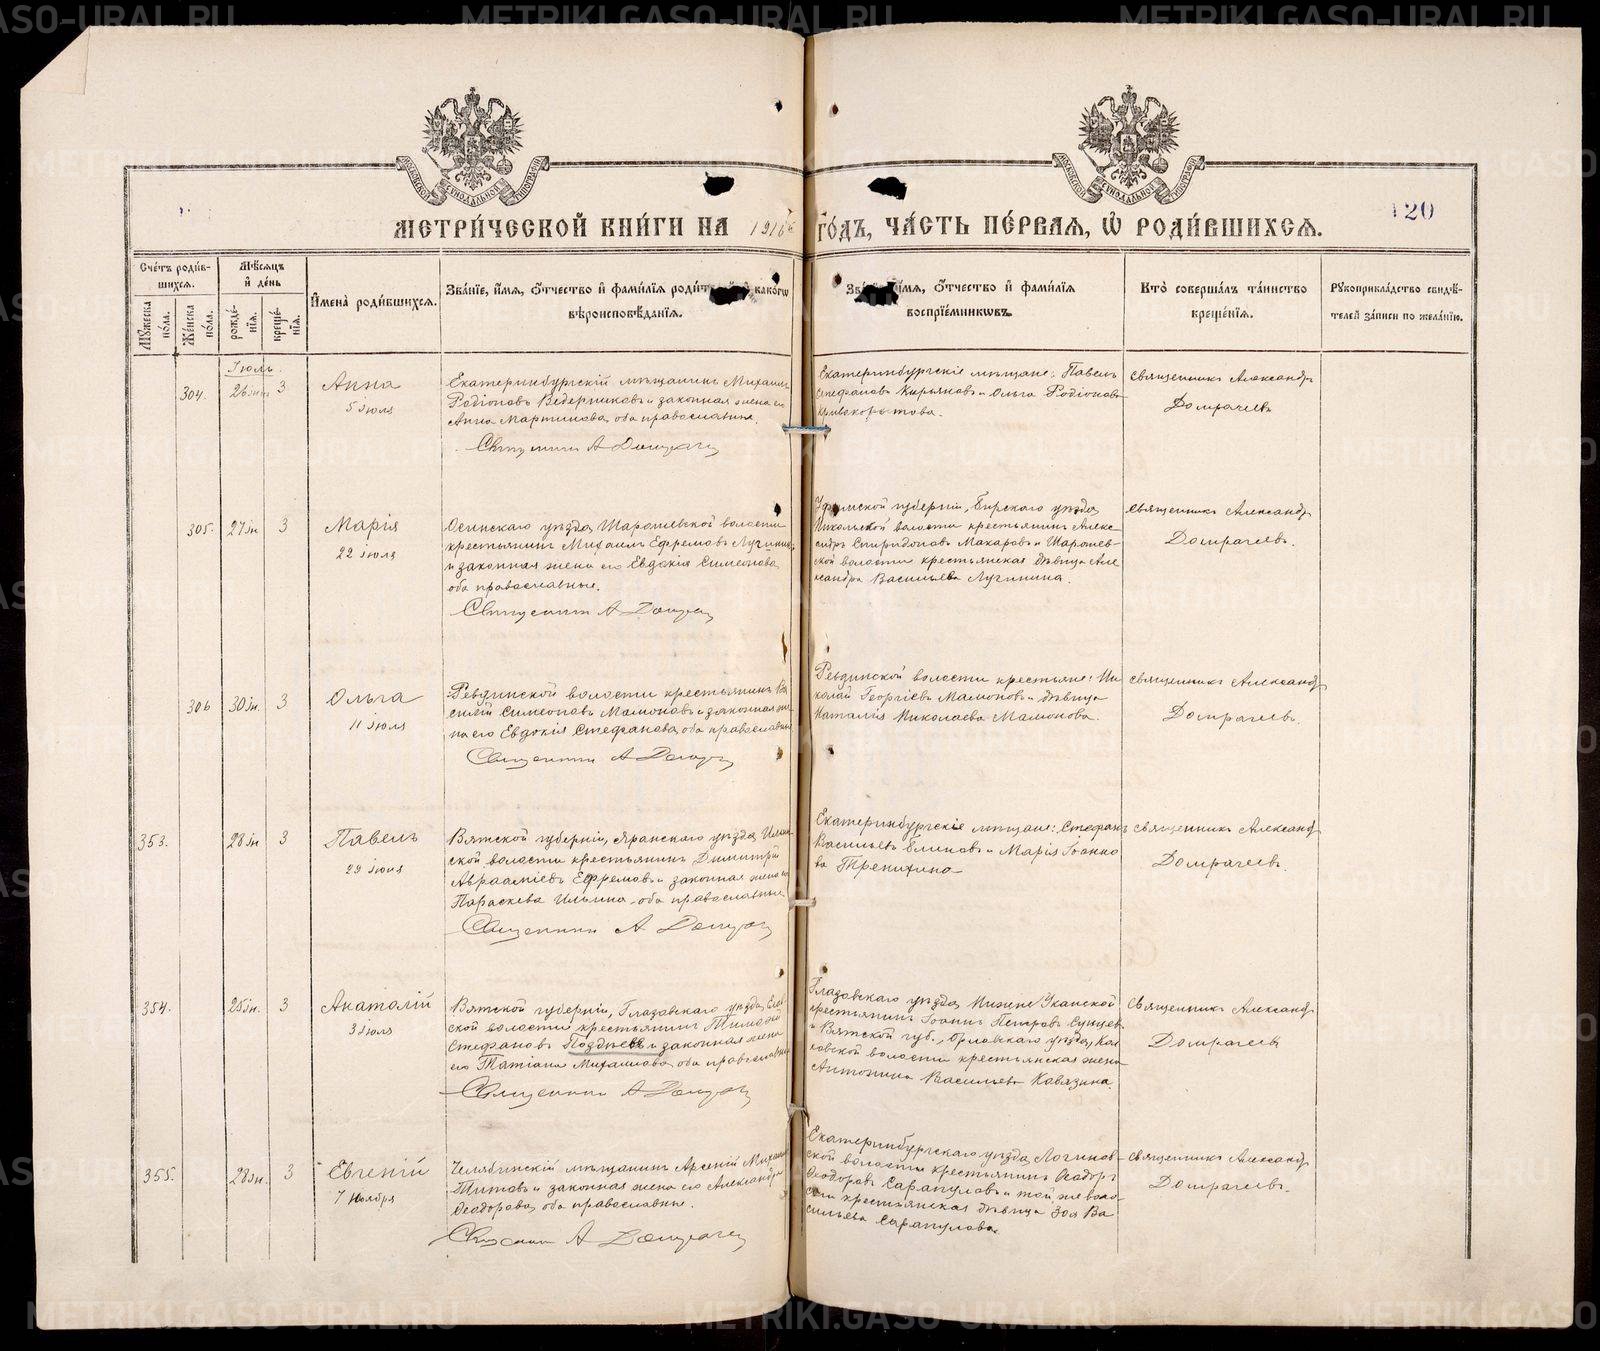 МЕТРИ́ЧЕСКОЙ КНИ́ГИ НА 1916й
ГО́ДЪ, ЧА́СТЬ ПЕ́РВАЯ, Ѡ РОДИ́ВШИХСЯ.
120
Сче́тъ роди́в-
шихся.
Мѣ́сяцъ
и де́нь
Мꙋ́жеска
по́ла.
Же́нска
по́ла.
рожде́-
нїя.
креще́-
нїя.
И́мена̀ роди́вшихся.
Зва́нїе, и́мя, о́тчество и фами́лїя како́гѡ
вѣроисповѣ́данїя.
и́мя, о́тчество и фами́лїя
воспрїе́мникѡвъ.
Кто̀ соверша́лъ та́инство
креще́нїя.
Рꙋкоприкла́дство свидѣ́-
телей за́писи по жела́нїю.
Іюль.
304.
26 іюн
3
Анна
5 іюля
Екатеринбургскій мѣщанинъ Михаилъ
Родіоновъ Ведерниковъ и законная жена его
Анна Мартинова, оба православные.
Священникъ А Домрачевъ
Екатеринбургскіе мѣщане: Павелъ
Стефановъ Кирьяновъ и Ольга Родіонова
Священникъ Александръ
Домрачевъ
305.
27 іюн
3
Марія
22 іюля
Осинскаго уѣзда, волости
крестьянинъ Михаилъ Ефремовъ Лучининъ
и законная жена его Евдокія Симеонова,
оба православные.
Священникъ А Домрачевъ
Уфимской губерніи, Бирскаго уѣзда,
Никольской волости крестьянинъ Алек-
сандръ Спиридоновъ Макаровъ и
ской волости крестьянская дѣвица Але
ксандра Васильева Лучинина.
Священникъ Александръ
Домрачевъ.
306
30 іюн.
3
Ольга
11 іюля
Ревдинской волости крестьянинъ Ва
силій Симеоновъ Мамоновъ и законная же-
на его Евдокія Стефанова, оба православные
Священникъ А Домрачевъ
Ревдинской волости крестьяне: Ни
колай Георгіевъ Мамоновъ и дѣвица
Наталія Николаева Мамонова.
Священникъ Александръ
Домрачевъ.
353.
28 іюн
3
Павелъ
29 іюня
Вятской губерніи, Яранскаго уѣзда,
ской волости крестьянинъ Димитрій
Авраамовъ Ефремовъ и законная жена его
Параскева Ильина, оба православные
Священникъ А Домрачевъ
Екатеринбургскіе мѣщане: Стефанъ
Васильевъ и Марія Іоанно
ва Тренихина
Священникъ Александръ
Домрачевъ.
354.
25 іюн.
3
Анатолій
3 іюля
Вятской губерніи, Глазовскаго уѣзда,
ской волости крестьянинъ
Стефановъ Позднѣевъ и законная жена
его Татіана Михаилова, оба православные
Священникъ А Домрачевъ
Глазовскаго уѣзда, Нижне-Уканской
крестьянинъ Іоаннъ Петровъ Сунцевъ
и Вятской губ., Орловскаго уѣзда,
ковской волости крестьянская жена
Антонина Васильева Кавазина.
Священникъ Александръ
Домрачевъ
355.
28 іюн.
3
Евгеній
7 ноября
Челябинскій мѣщанинъ Арсеній
Титовъ и законная жена его Александра
Ѳеодорова, оба православные.
Священникъ А Домрачевъ
Екатеринбургскаго уѣзда, Логинов-
ской волости крестьянинъ Ѳеодоръ
Ѳеодоровъ Сарапуловъ и той же воло-
сти крестьянская дѣвица Зоя Ва
сильева Сарапулова.
Священникъ Александръ
Домрачевъ.
METRIKI.GASO-URAL.RU